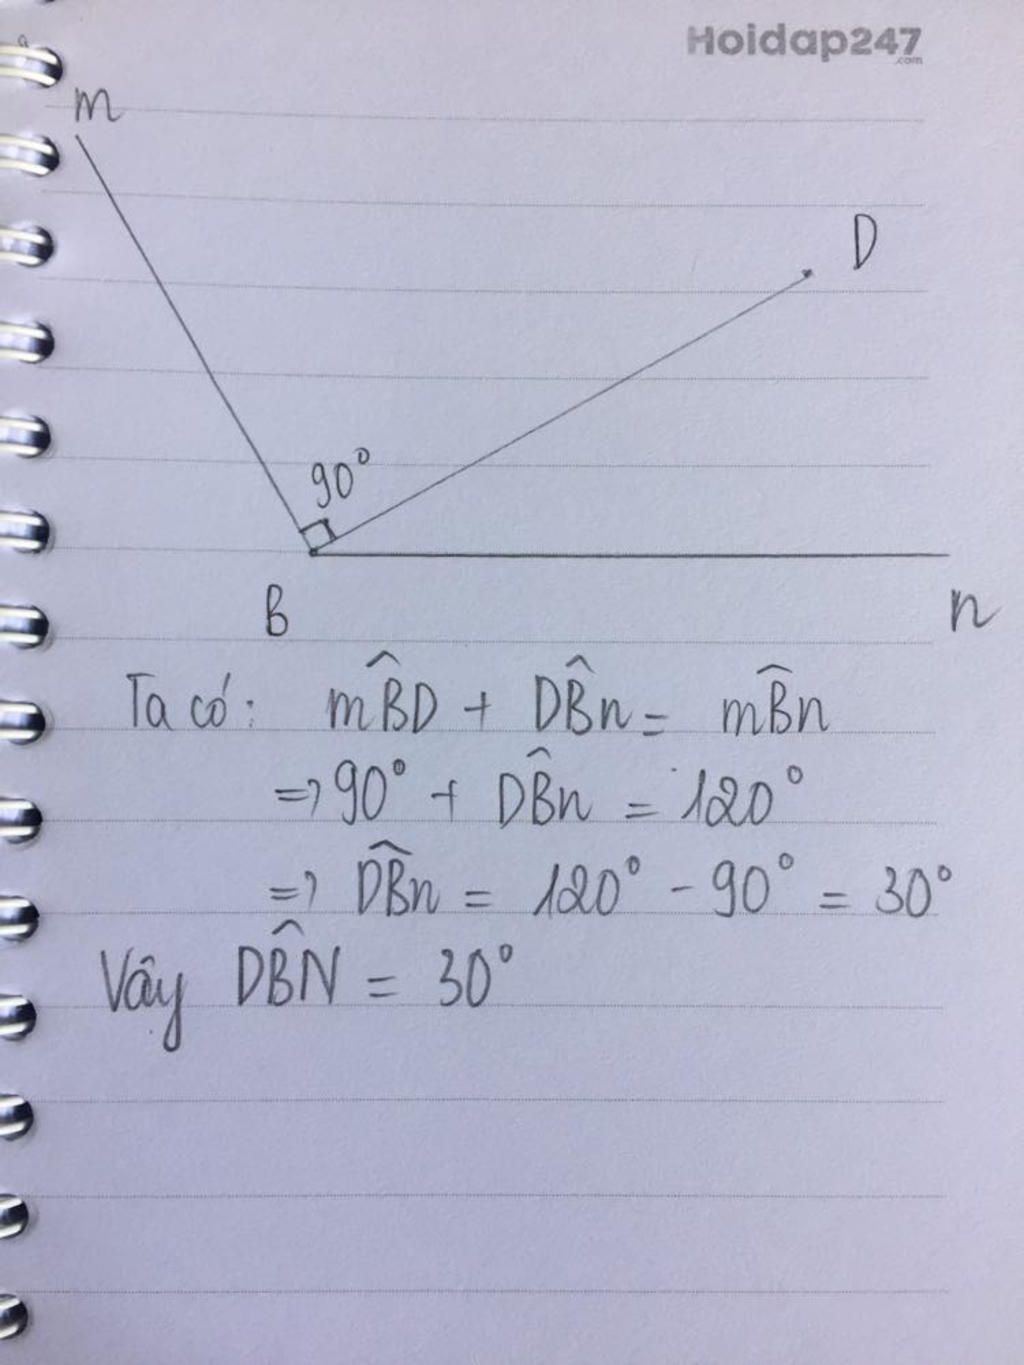 Hoidap247
.com
m
D
90°
B
n
Ta có: mB̂D + DB̂n = mB̂n
=> 90° + DB̂n = 120°
=> DB̂n = 120° - 90° = 30°
Vây DB̂N = 30°